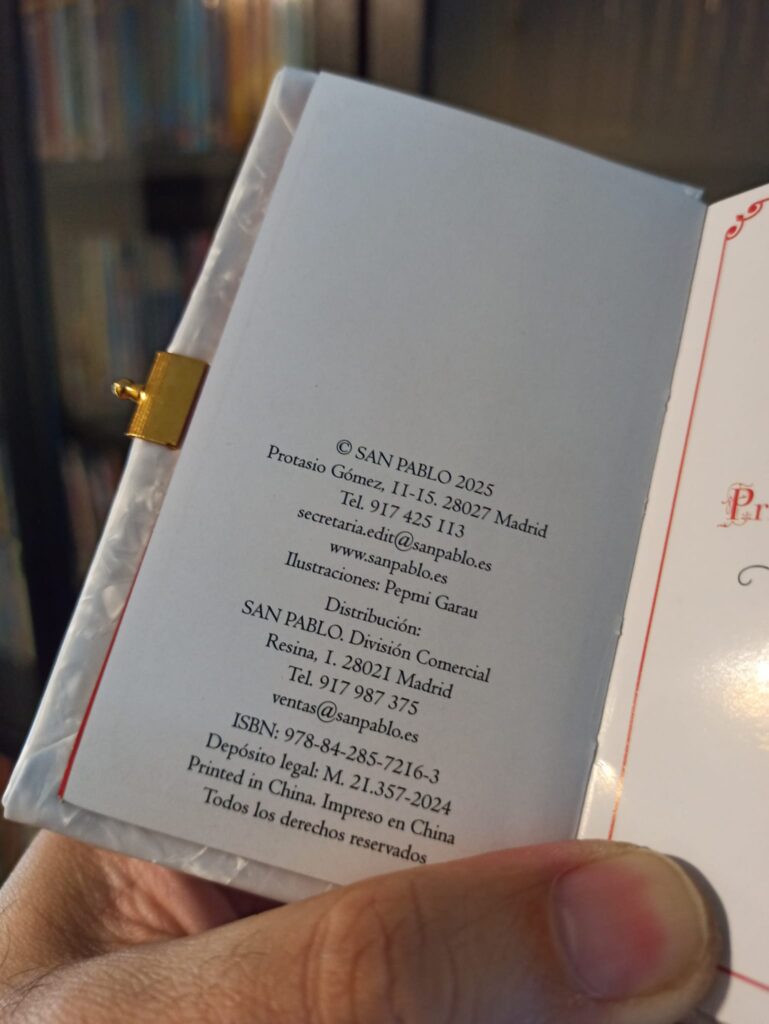 © SAN PABLO 2025
Protasio Gómez, 11-15. 28027 Madrid
Tel. 917 425 113
secretaria.edit@sanpablo.es
www.sanpablo.es
Ilustraciones: Pepmi Garau
Distribución:
SAN PABLO. División Comercial
Resina, 1. 28021 Madrid
Tel. 917 987 375
ventas@sanpablo.es
ISBN: 978-84-285-7216-3
Depósito legal: M. 21.357-2024
Printed in China. Impreso en China
Todos los derechos reservados